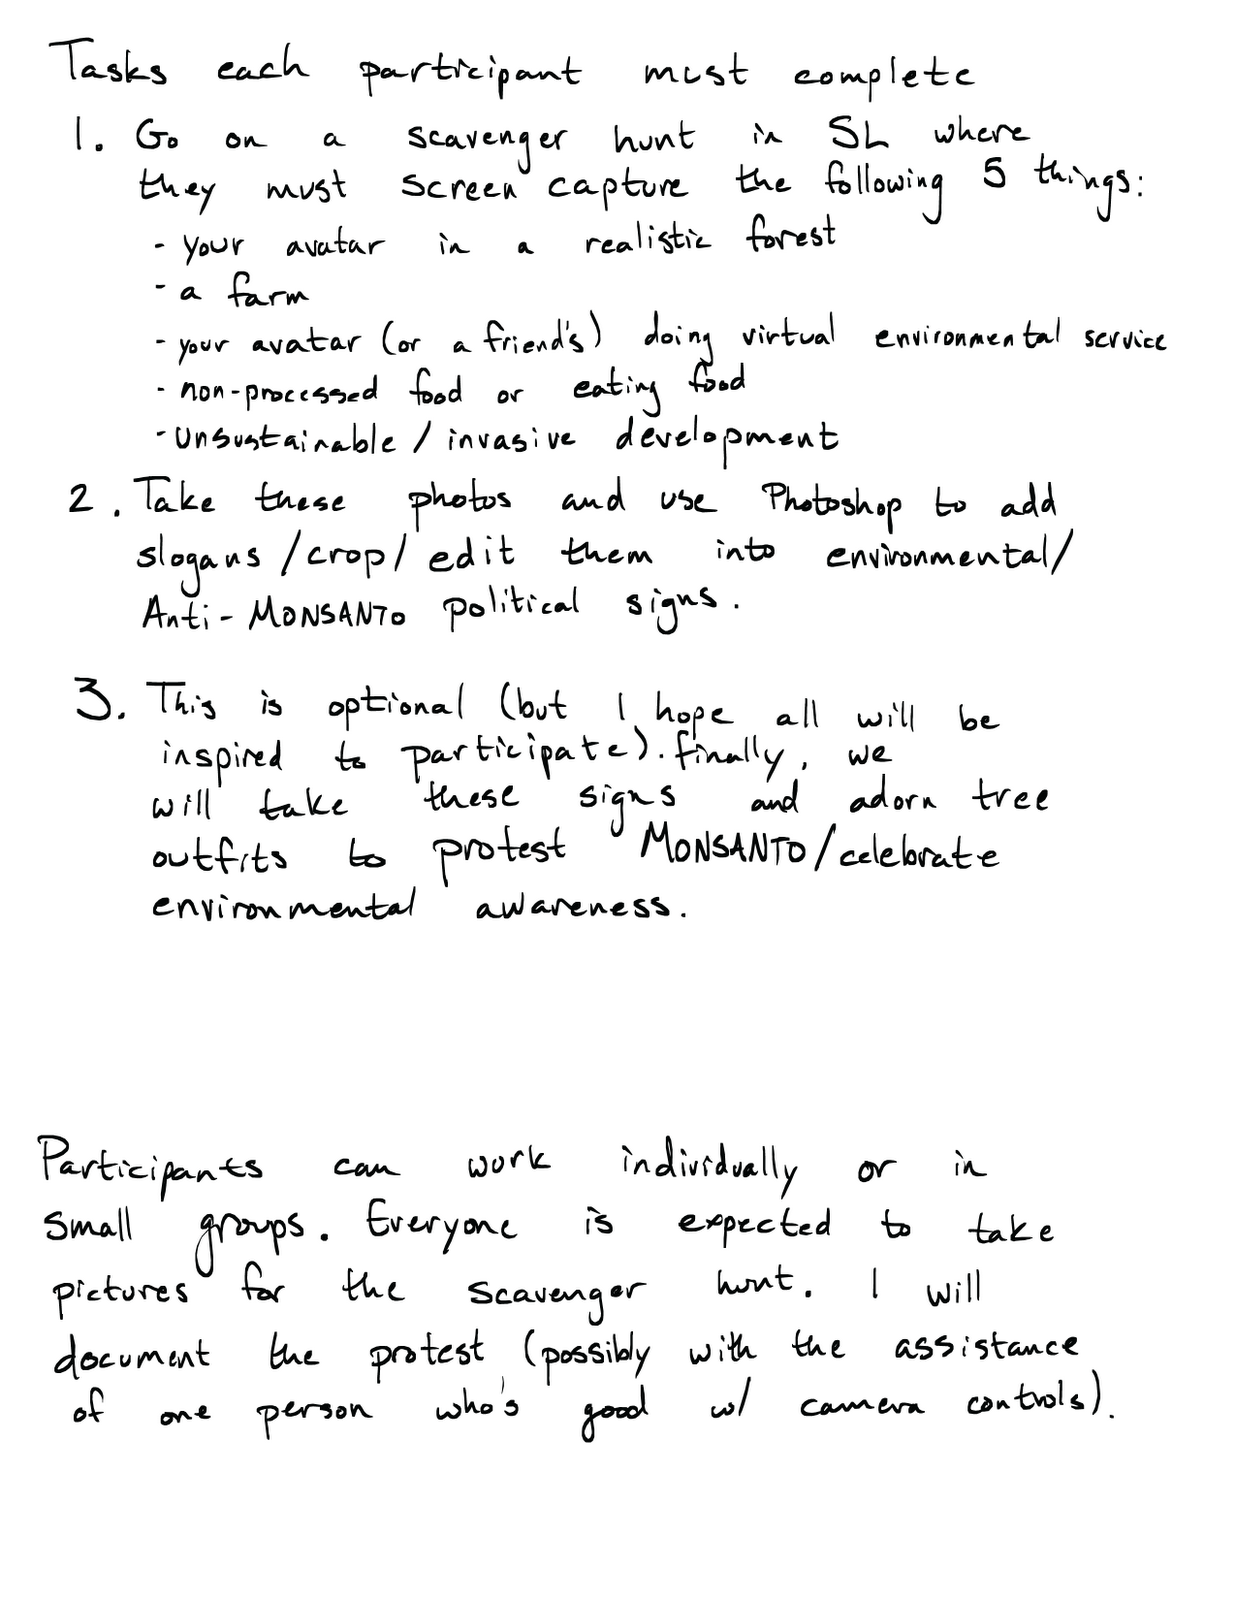 Tasks each participant must complete
1. Go on a scavenger hunt in SL where
they must screen capture the following 5 things:
- your avatar in a realistic forest
- a farm
- your avatar (or a friend's) doing virtual environmental service
- non-processed food or eating food
- unsustainable / invasive development
2. Take these photos and use Photoshop to add
slogans / crop / edit them into environmental/
Anti-MONSANTO political signs.
3. This is optional (but I hope all will be
inspired to participate). finally, we
will take these signs and adorn tree
outfits to protest MONSANTO/celebrate
environmental awareness.
Participants can work individually or in
small groups. Everyone is expected to take
pictures for the scavenger hunt. I will
document the protest (possibly with the assistance
of one person who's good w/ camera controls).